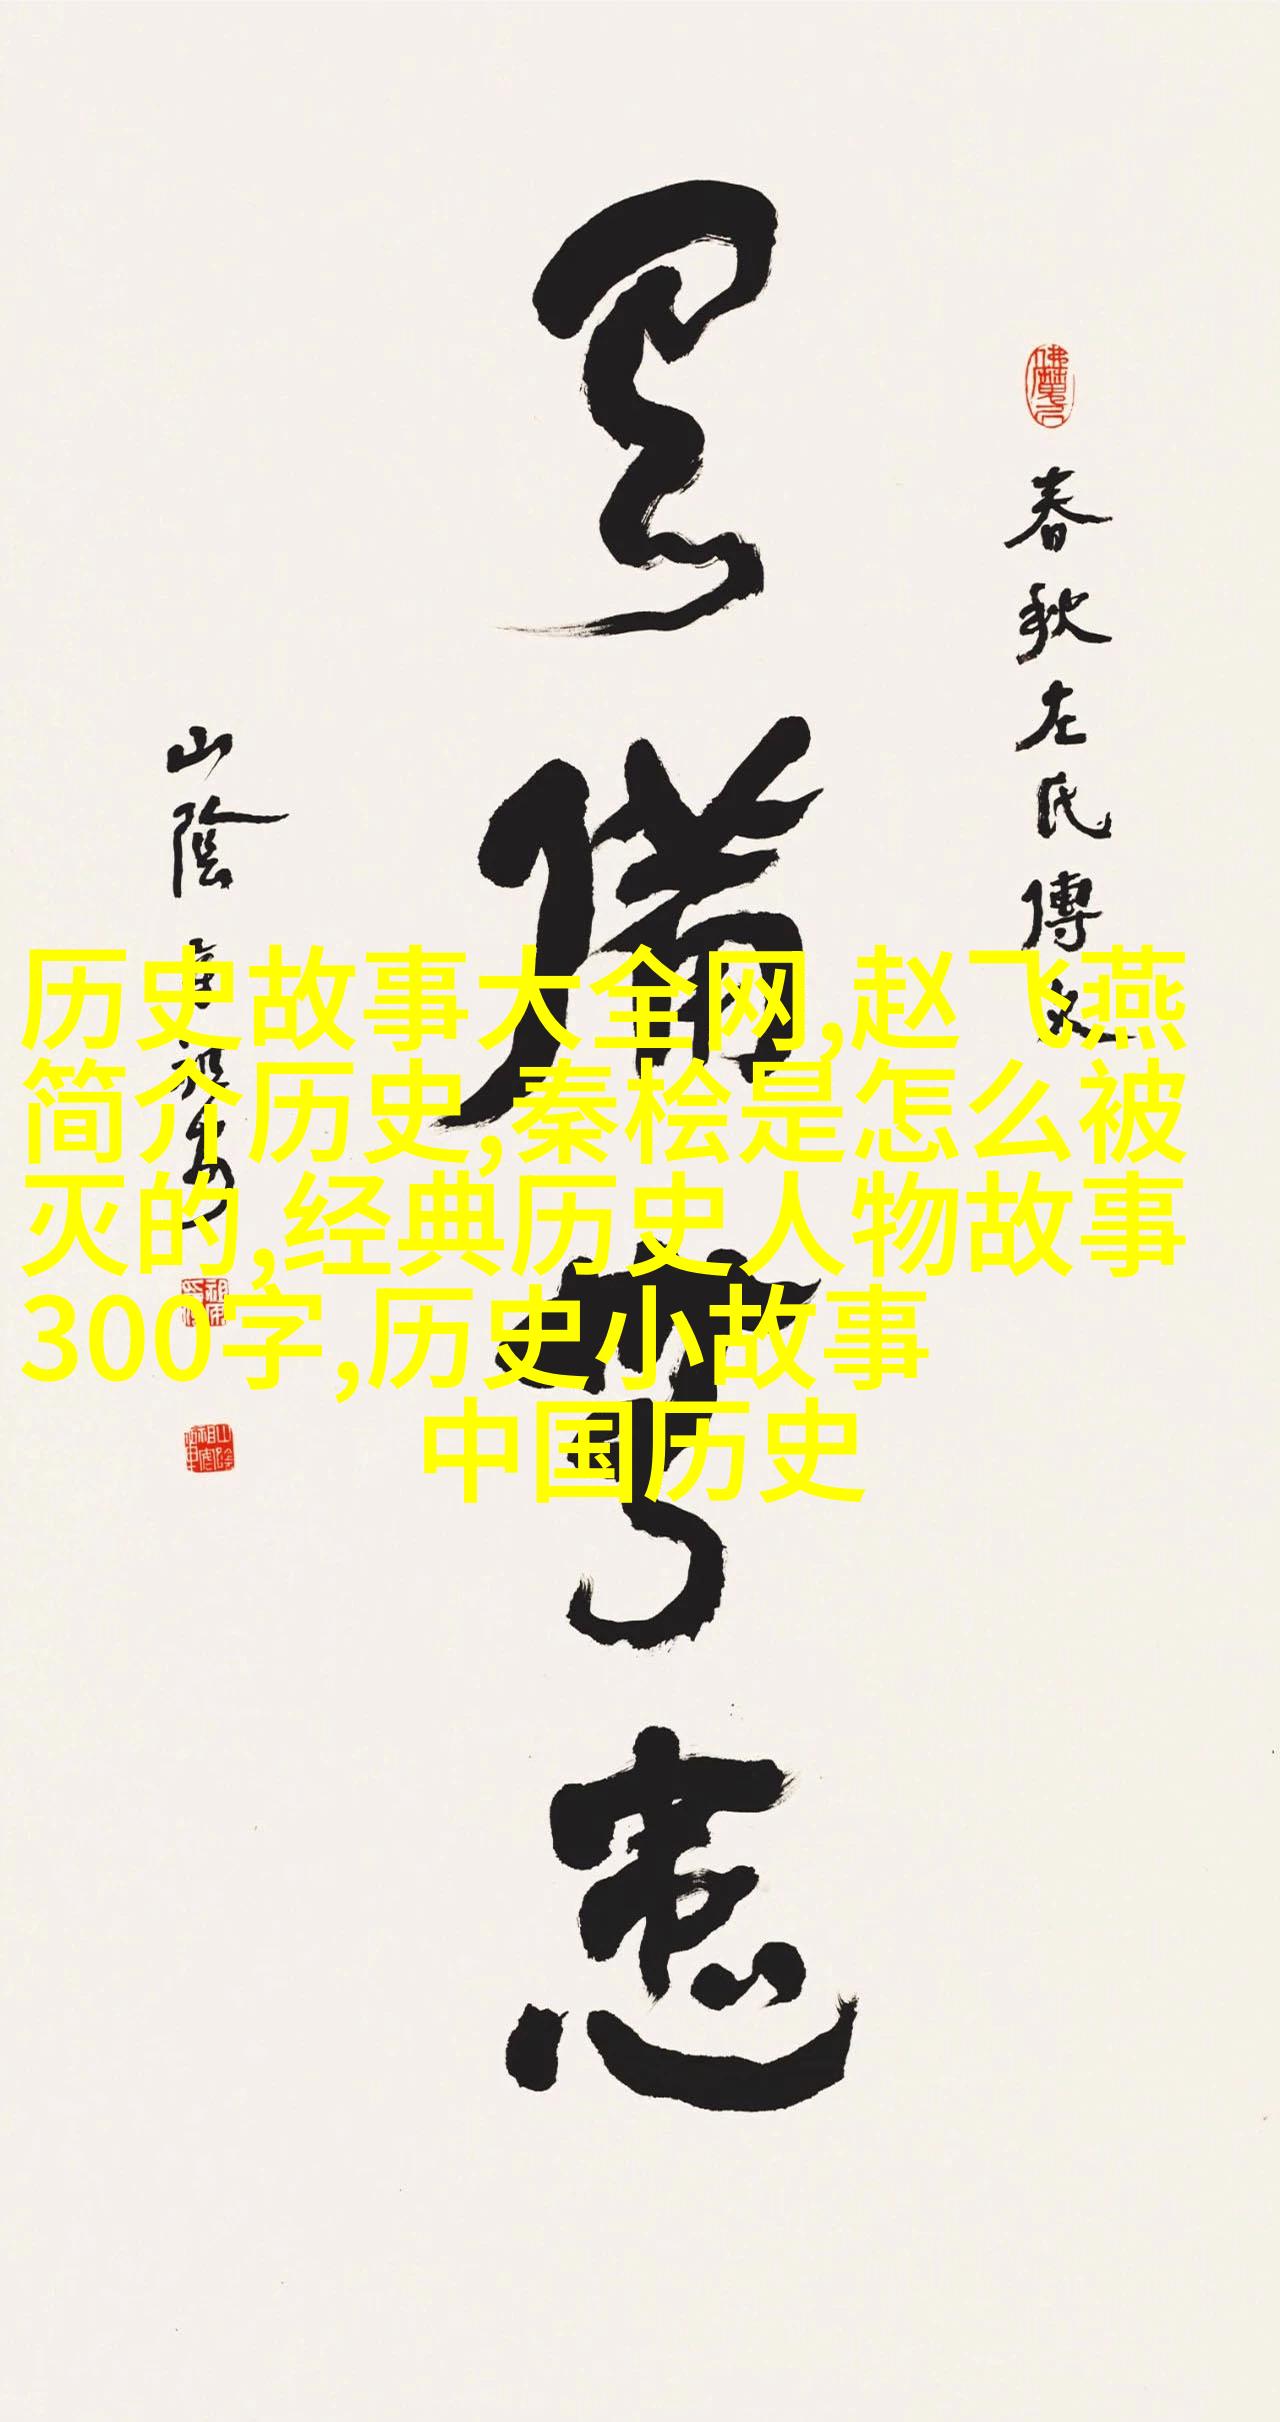 佛摩弓
春秋左氏傳文
居備無患
山陰
历史故事大全网,赵飞燕
简介历史,秦桧是怎么被
灭的,经典历史人物故事
300字,历史小故事
中国历史